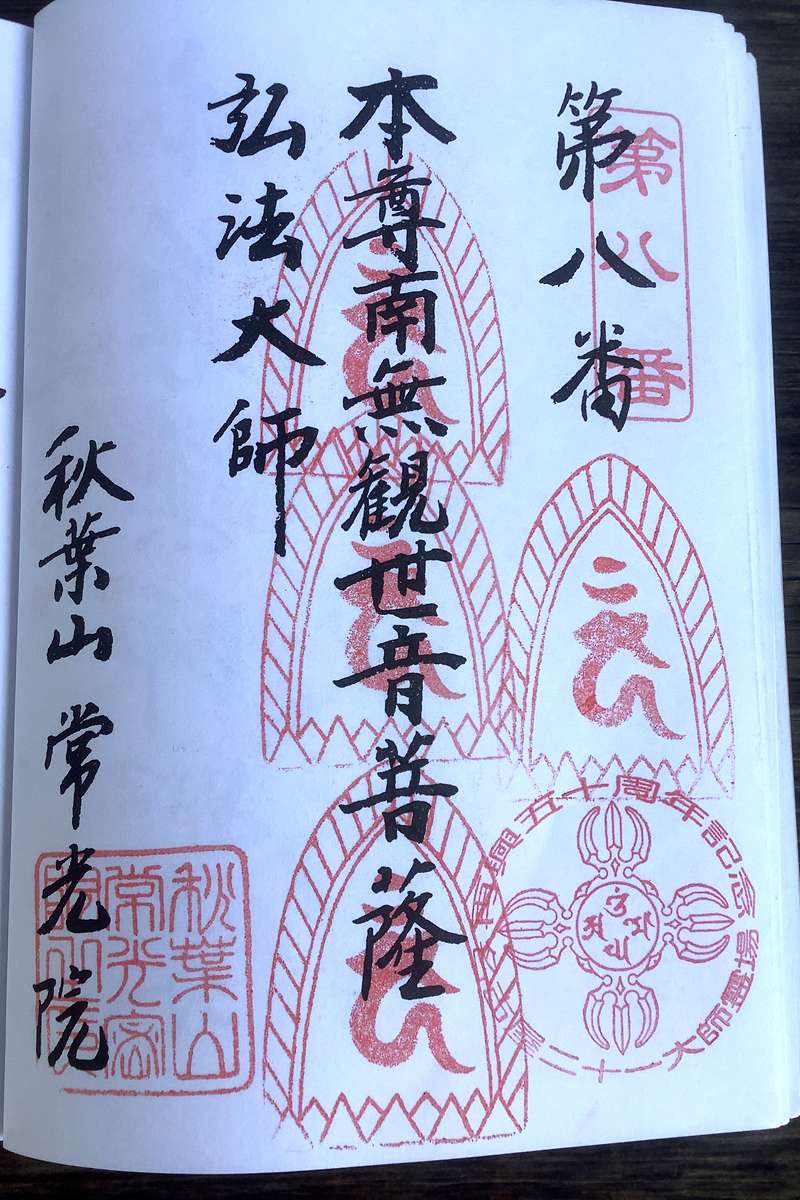 第八番
第八番
本尊南無観世音菩薩
弘法大師
秋葉山 常光院
興五十周年記念
二十一大師霊場
秋葉山
常光